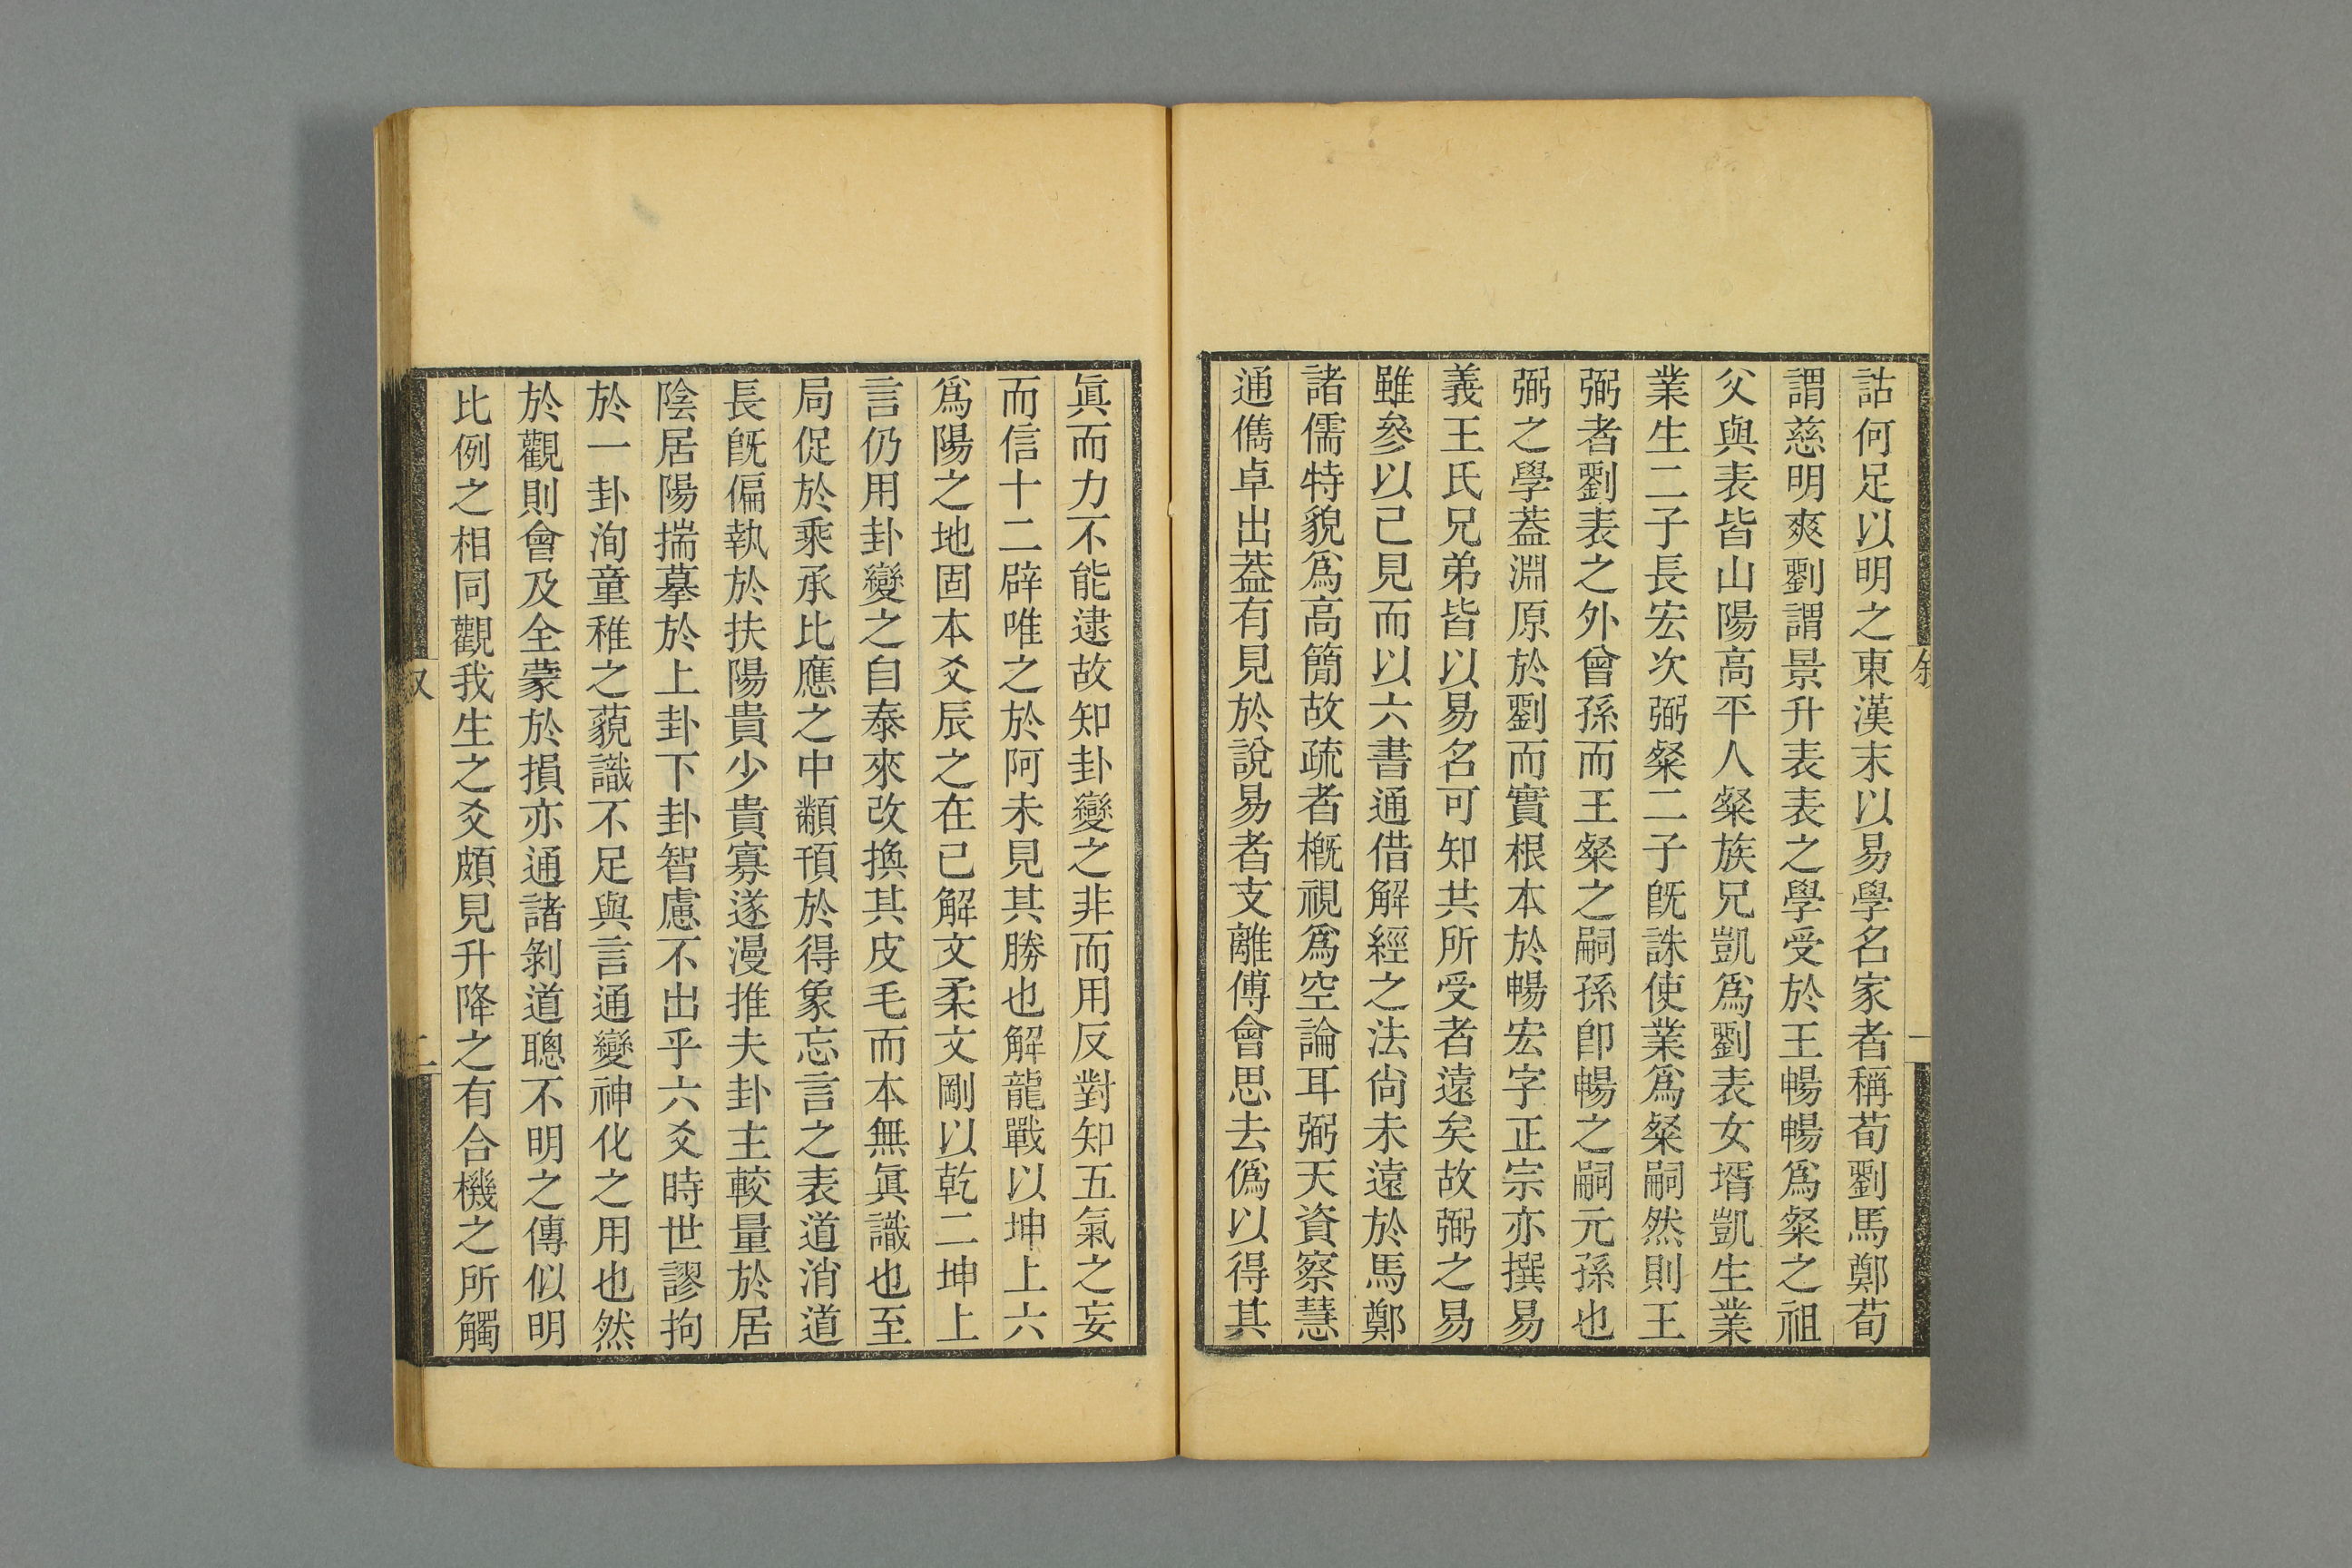 敘
一
詁何足以明之東漢末以易學名家者稱荀劉馬鄭荀
謂慈明爽劉謂景升表表之學受於王暢暢爲粲之祖
父與表皆山陽高平人粲族兄凱爲劉表女壻凱生業
業生二子長宏次弼粲二子旣誅使業爲粲嗣然則王
弼者劉表之外曾孫而王粲之嗣孫卽暢之嗣元孫也
弼之學蓋淵原於劉而實根本於暢宏字正宗亦撰易
義王氏兄弟皆以易名可知其所受者遠矣故弼之易
雖參以己見而以六書通借解經之法尙未遠於馬鄭
諸儒特貌爲高簡故疏者槪視爲空論耳弼天資察慧
通儁卓出蓋有見於說易者支離傅會思去僞以得其
眞而力不能逮故知卦變之非而用反對知五氣之妄
而信十二辟唯之於阿未見其勝也解龍戰以坤上六
爲陽之地固本爻辰之在已解文柔文剛以乾二坤上
言仍用卦變之自泰來改換其皮毛而本無眞識也至
局促於乘承比應之中顢頇於得象忘言之表道消道
長旣偏執於扶陽貴少貴寡遂漫推夫卦主較量於居
陰居陽揣摹於上卦下卦智慮不出乎六爻時世謬拘
於一卦洵童稚之藐識不足與言通變神化之用也然
於觀則會及全蒙於損亦通諸剝道聰不明之傳似明
比例之相同觀我生之爻頗見升降之有合機之所觸
二